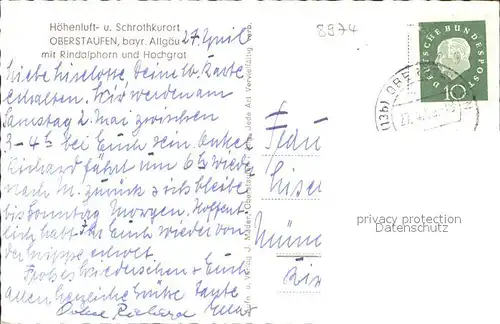 Höhenluft- u. Schrothkurort
OBERSTAUFEN, bayr. Allgäu
mit Rindalphorn und Hochgrat
27 April
8974
Liebe Liselotte Deine lb. Karte
erhalten. Wir werden am
Samstag 2. Mai zwischen
3-4h bei Euch sein. Onkel
Richard fährt um 6h wieder
nach M. zurück & ich bleibe
bis Sonntag Morgen. Hoffent
lich habt Ihr Euch wieder von
der Grippe erholt.
Frohes Wiedersehen & Euch
Allen herzliche Grüße Tante
Onkel Richard
Frau
DEUTSCHE BUNDESPOST
10
(13b) OBERST
Jede Art Vervielfältig. verb.
privacy protection
Datenschutz